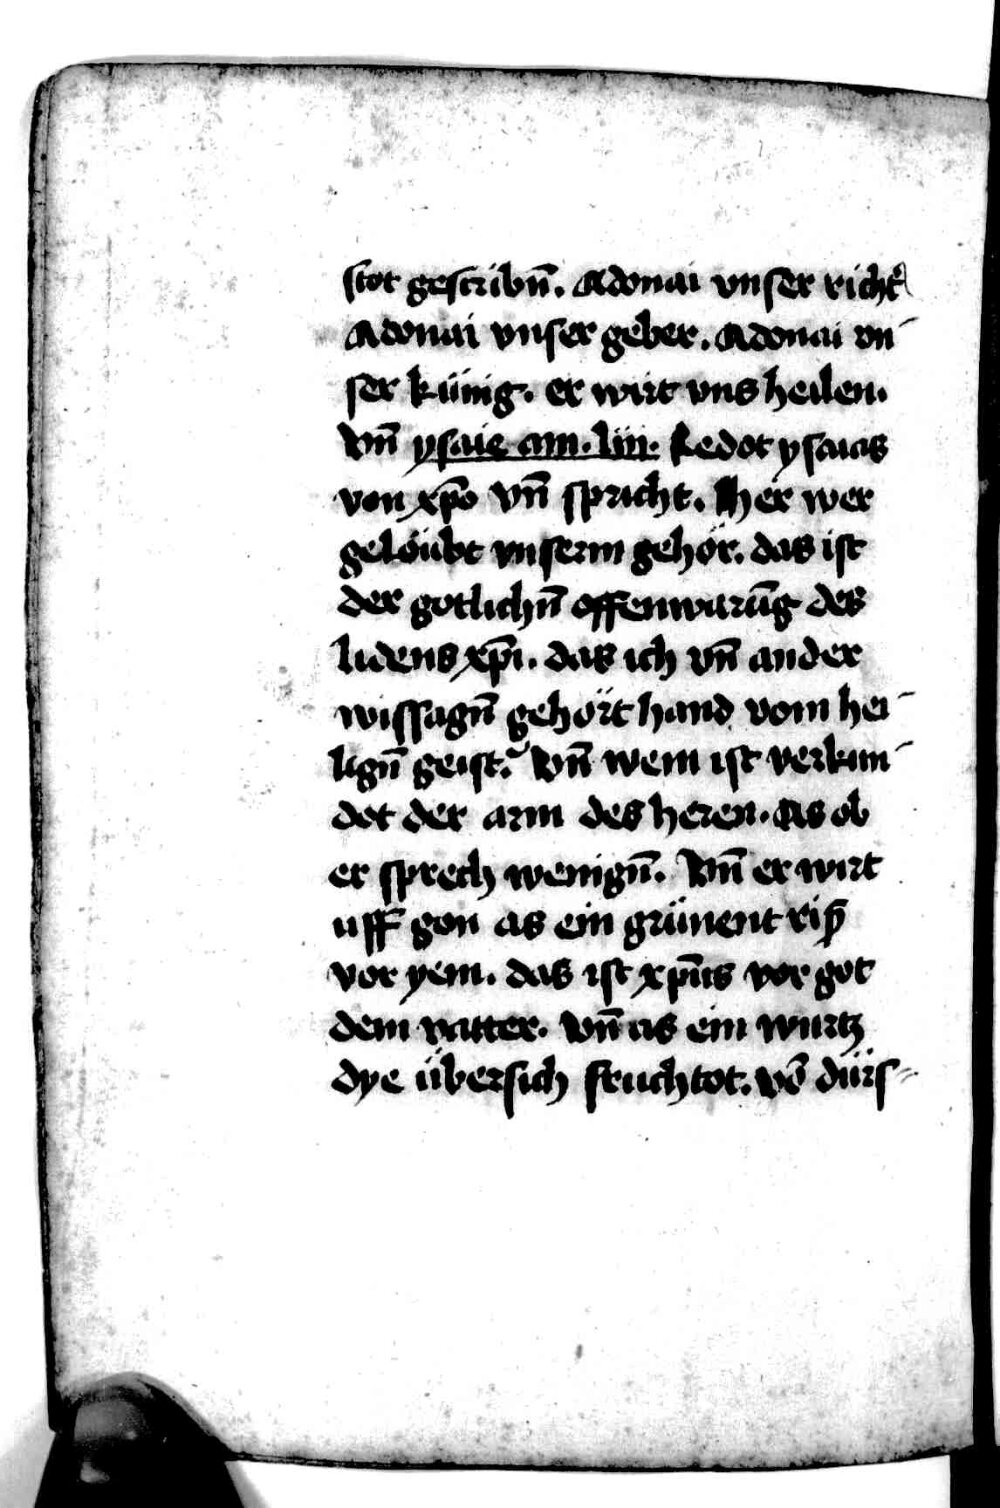 stot gescribn̄. Adonai vnser richt͛
Adonai vnser geber. Adonai vn-
ser küng. er wirt vns heilen.
Vn̄ ysaie am. liij. Redot ysaias
von xp̄o vn̄ spricht. Her wer
gelöubt vnserm gehör. das ist
der gotlichn̄ offenwarūg des
lidens xp̄i. das ich vn̄ ander
wissagn̄ gehört hand vom hei-
lign̄ geist. Vn̄ wem ist verkün-
dot der arm des heren. As ob
er sprech wenign̄. Vn̄ er wirt
uff gon as ein grünent rip̄
vor yem. das ist xp̄us vor got
dem vatter. Vn̄ as ein wurtz
dye übersich fruchtot. vō dürs-